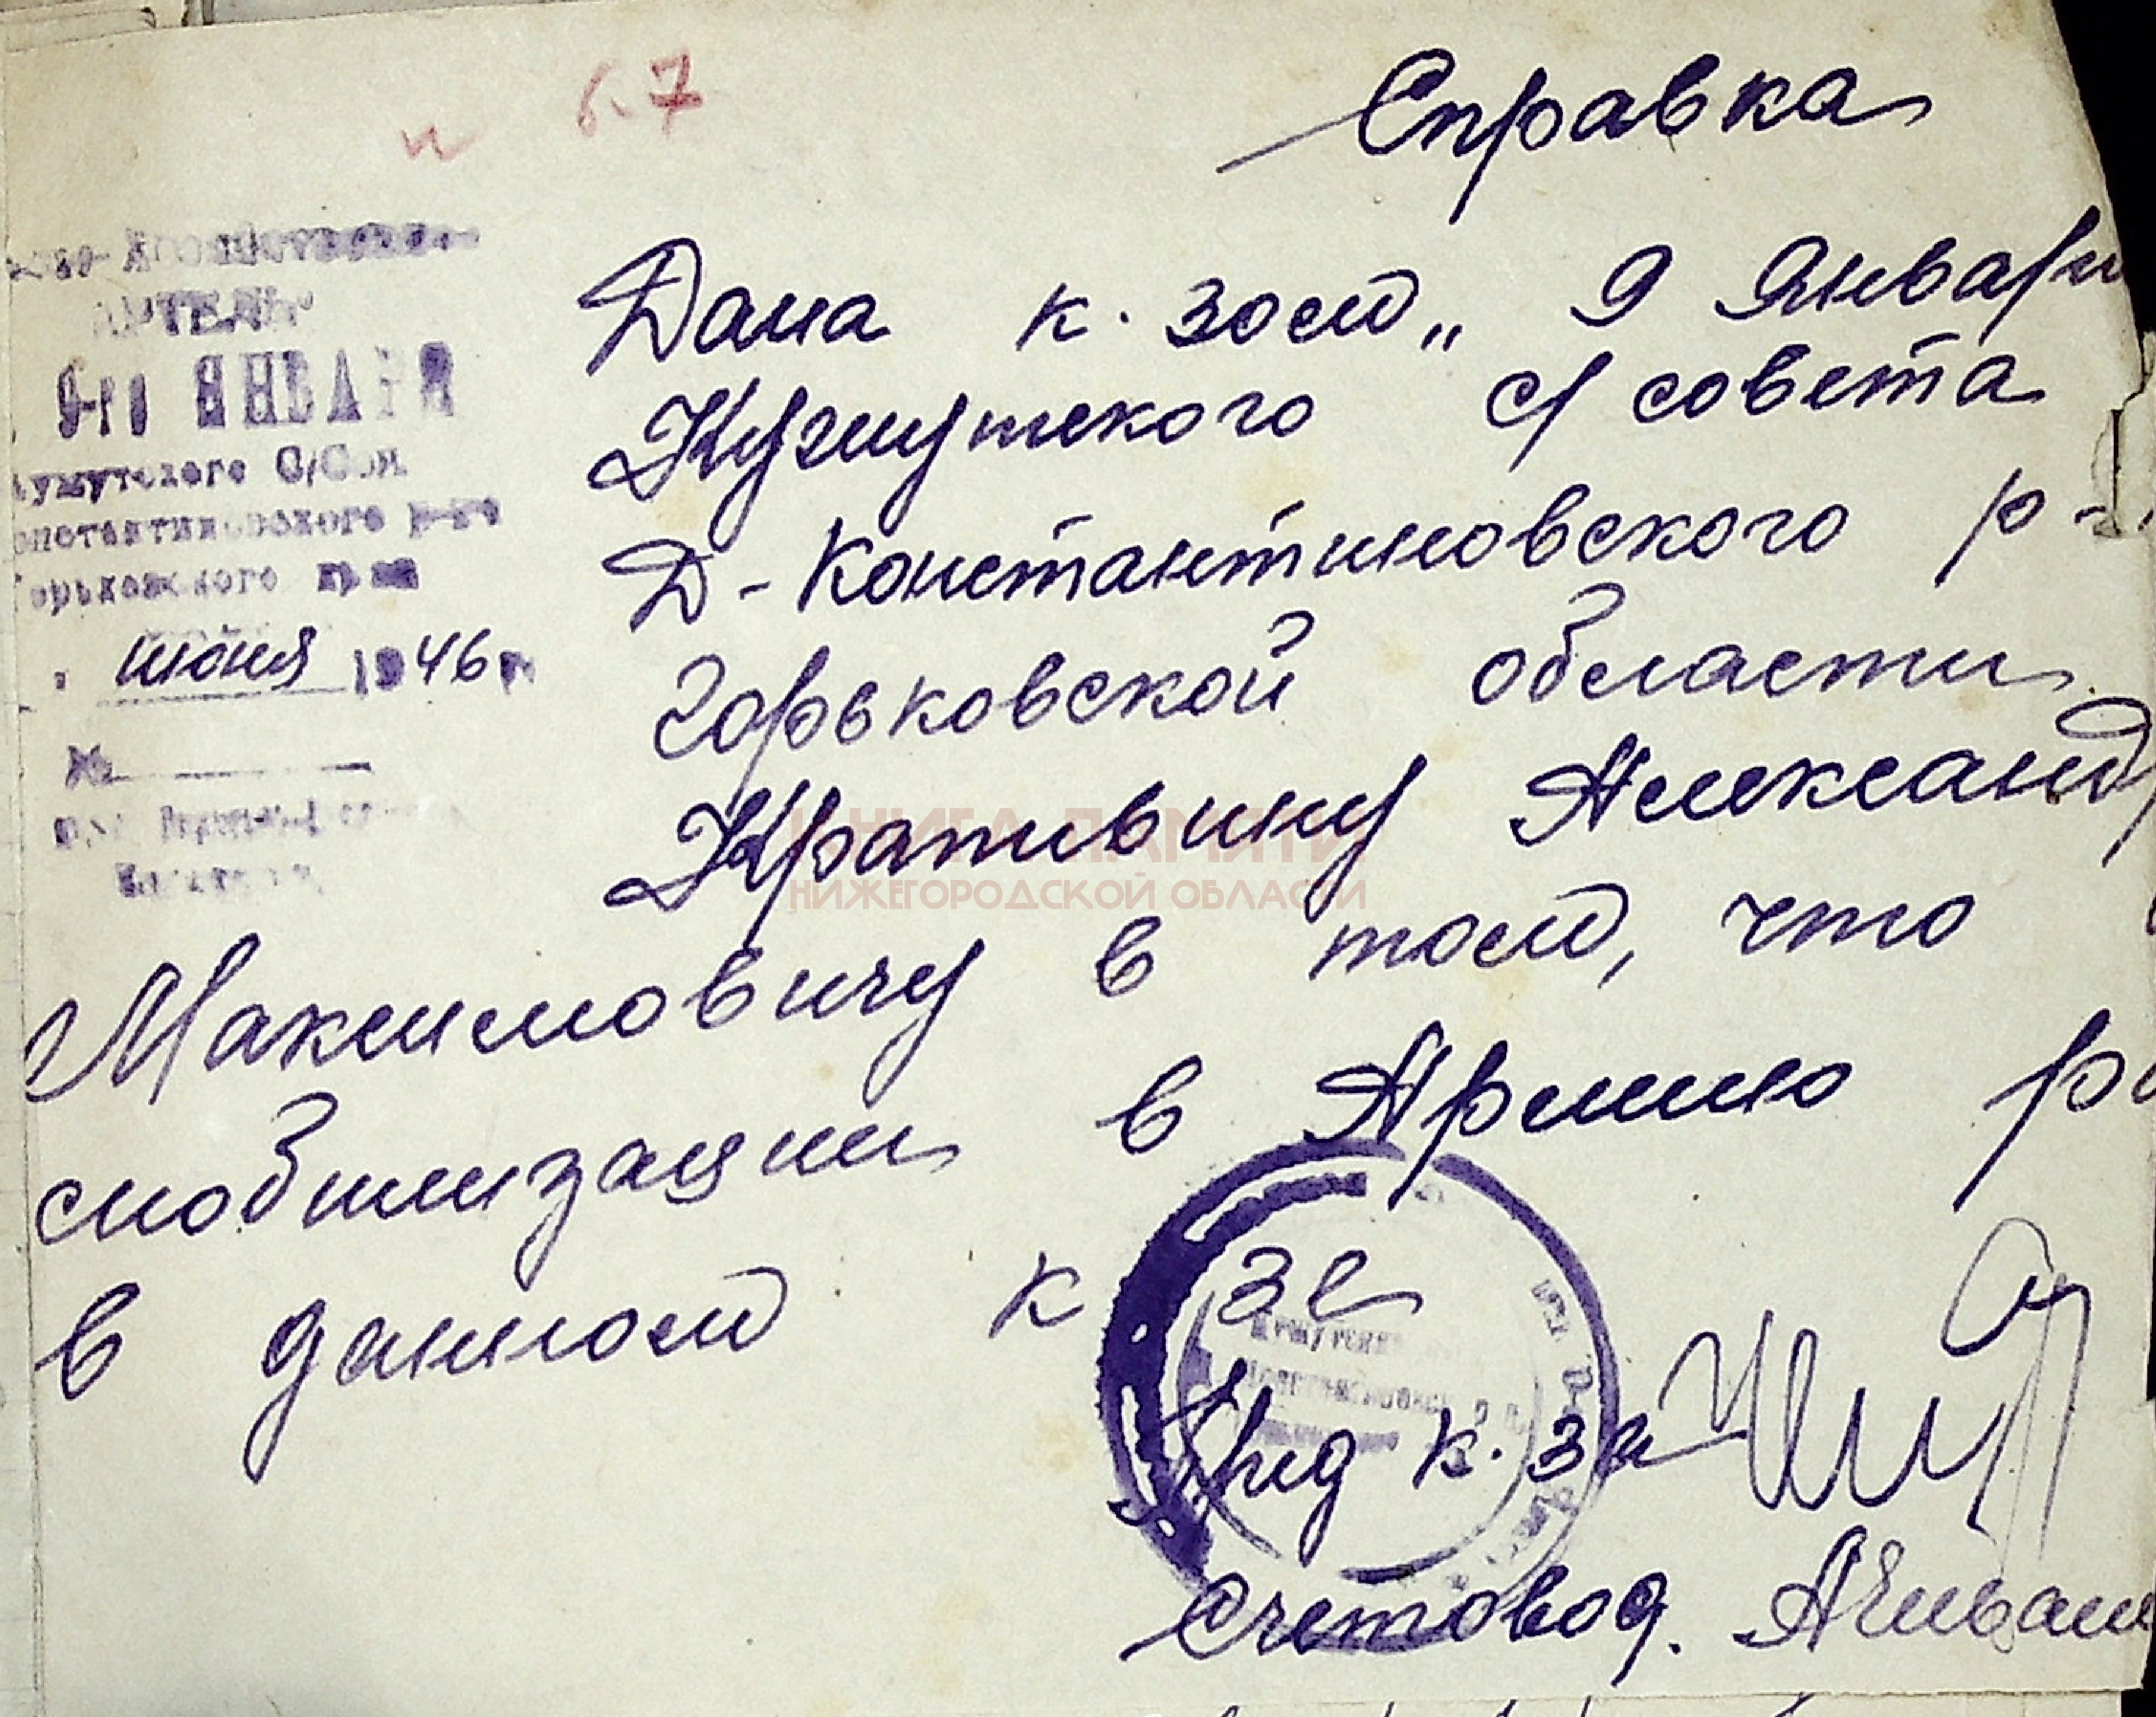 и 6.7
Справка
АРТЕЛЬ
9-го ЯНВАРЯ
ужутского С/Сов.
онстантиновского р-на
Горьковского края
июня 1946 г.
№
Дана к. зом „ 9 Январи
Кужутского с/совета
Д-Константиновского р-
Горьковской области
Крапивину Александ
Максимовичу в том, что
смобилизации в Армию р
в данном к зе
Пред к. за
Счетовод.
КНИГА ПАМЯТИ
НИЖЕГОРОДСКОЙ ОБЛАСТИ